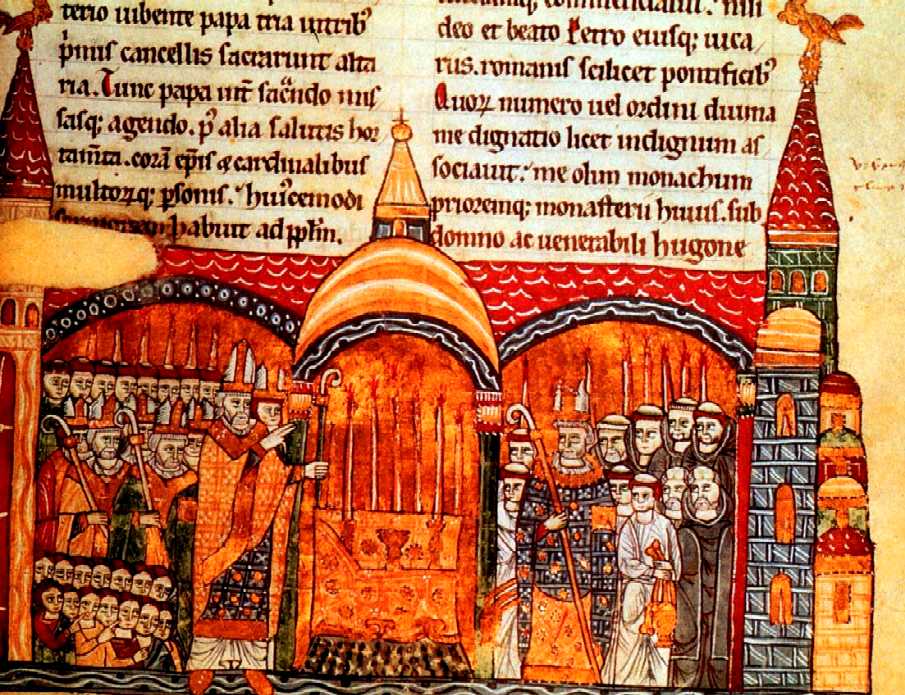 terio iubente papa tria in tribꝰ
p̄mis cancellis sacrarunt alta
ria. Tunc papa int̄ sac̄ndo mis
sasq; agendo. p̄ alia salutis hor
tam̄ta. corā ep̄is & cardinalibus
multoꝝq; p̱sonis. huiꝰcemodi
habuit ad pp̄lm.
deo et beato Petro eiusq; uica
riis. romanis scilicet pontificibꝰ
Quoꝝ numero uel ordini diuina
me dignatio licet indignum as
sociauit. me olim monachum
prioremq; monasterii huius. sub
domno ac uenerabili hugone